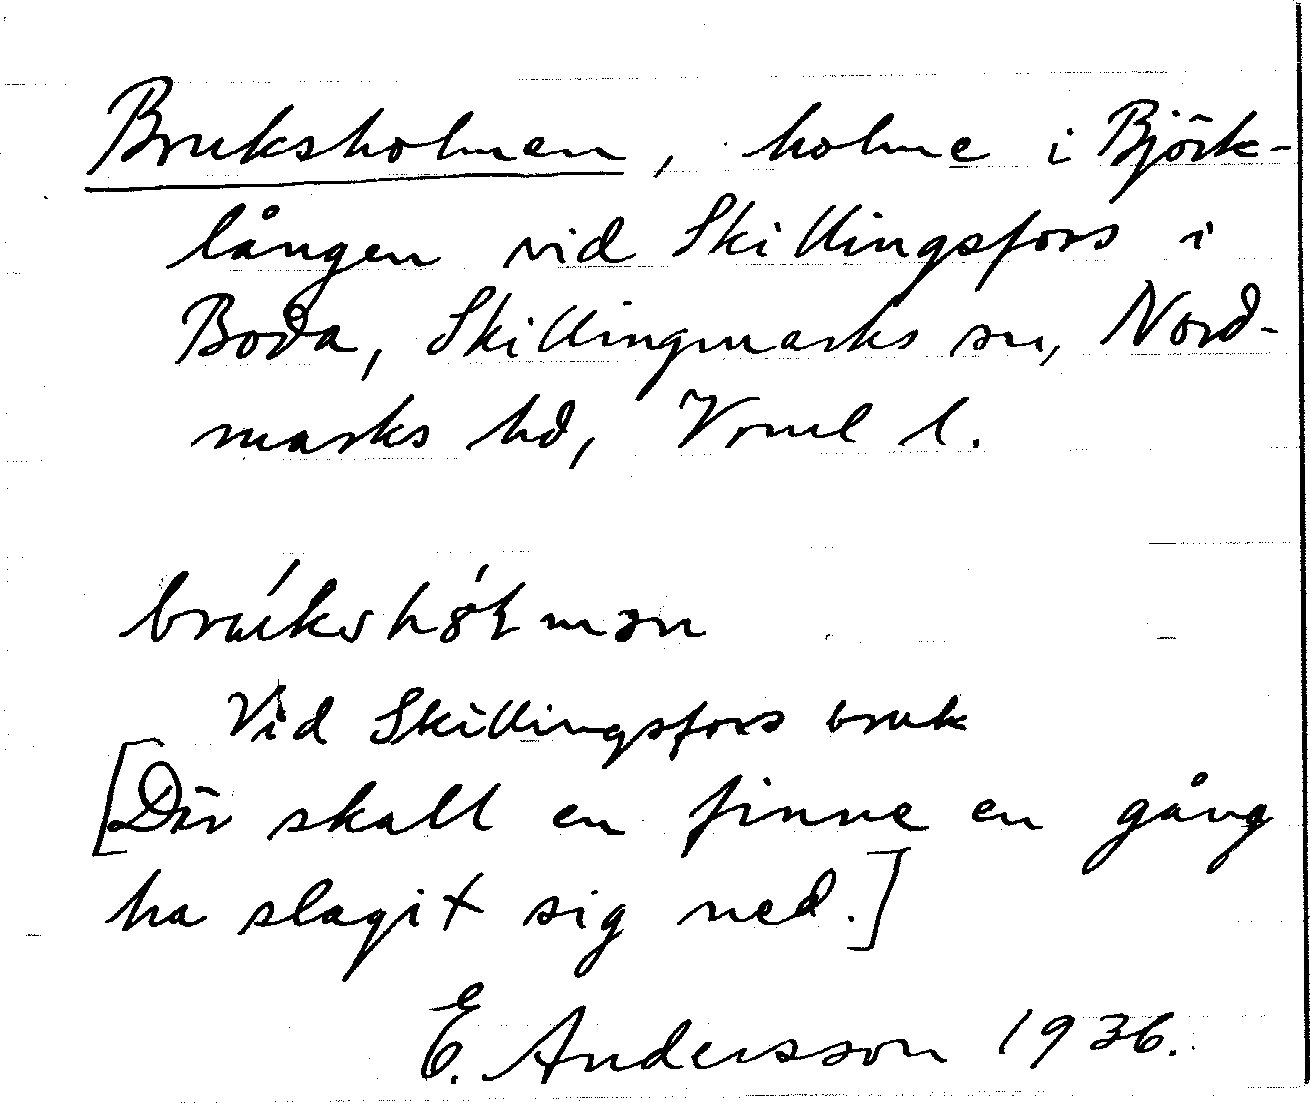 Bruksholmen, holme i Björk-
lången vid Skillingsfors i
Boda, Skillingmarks sn, Nord-
marks hd, Vrml l.
Vid Skillingsfors bruk
[Där skall en finne en gång
ha slagit sig ned.]
E. Andersson 1936.